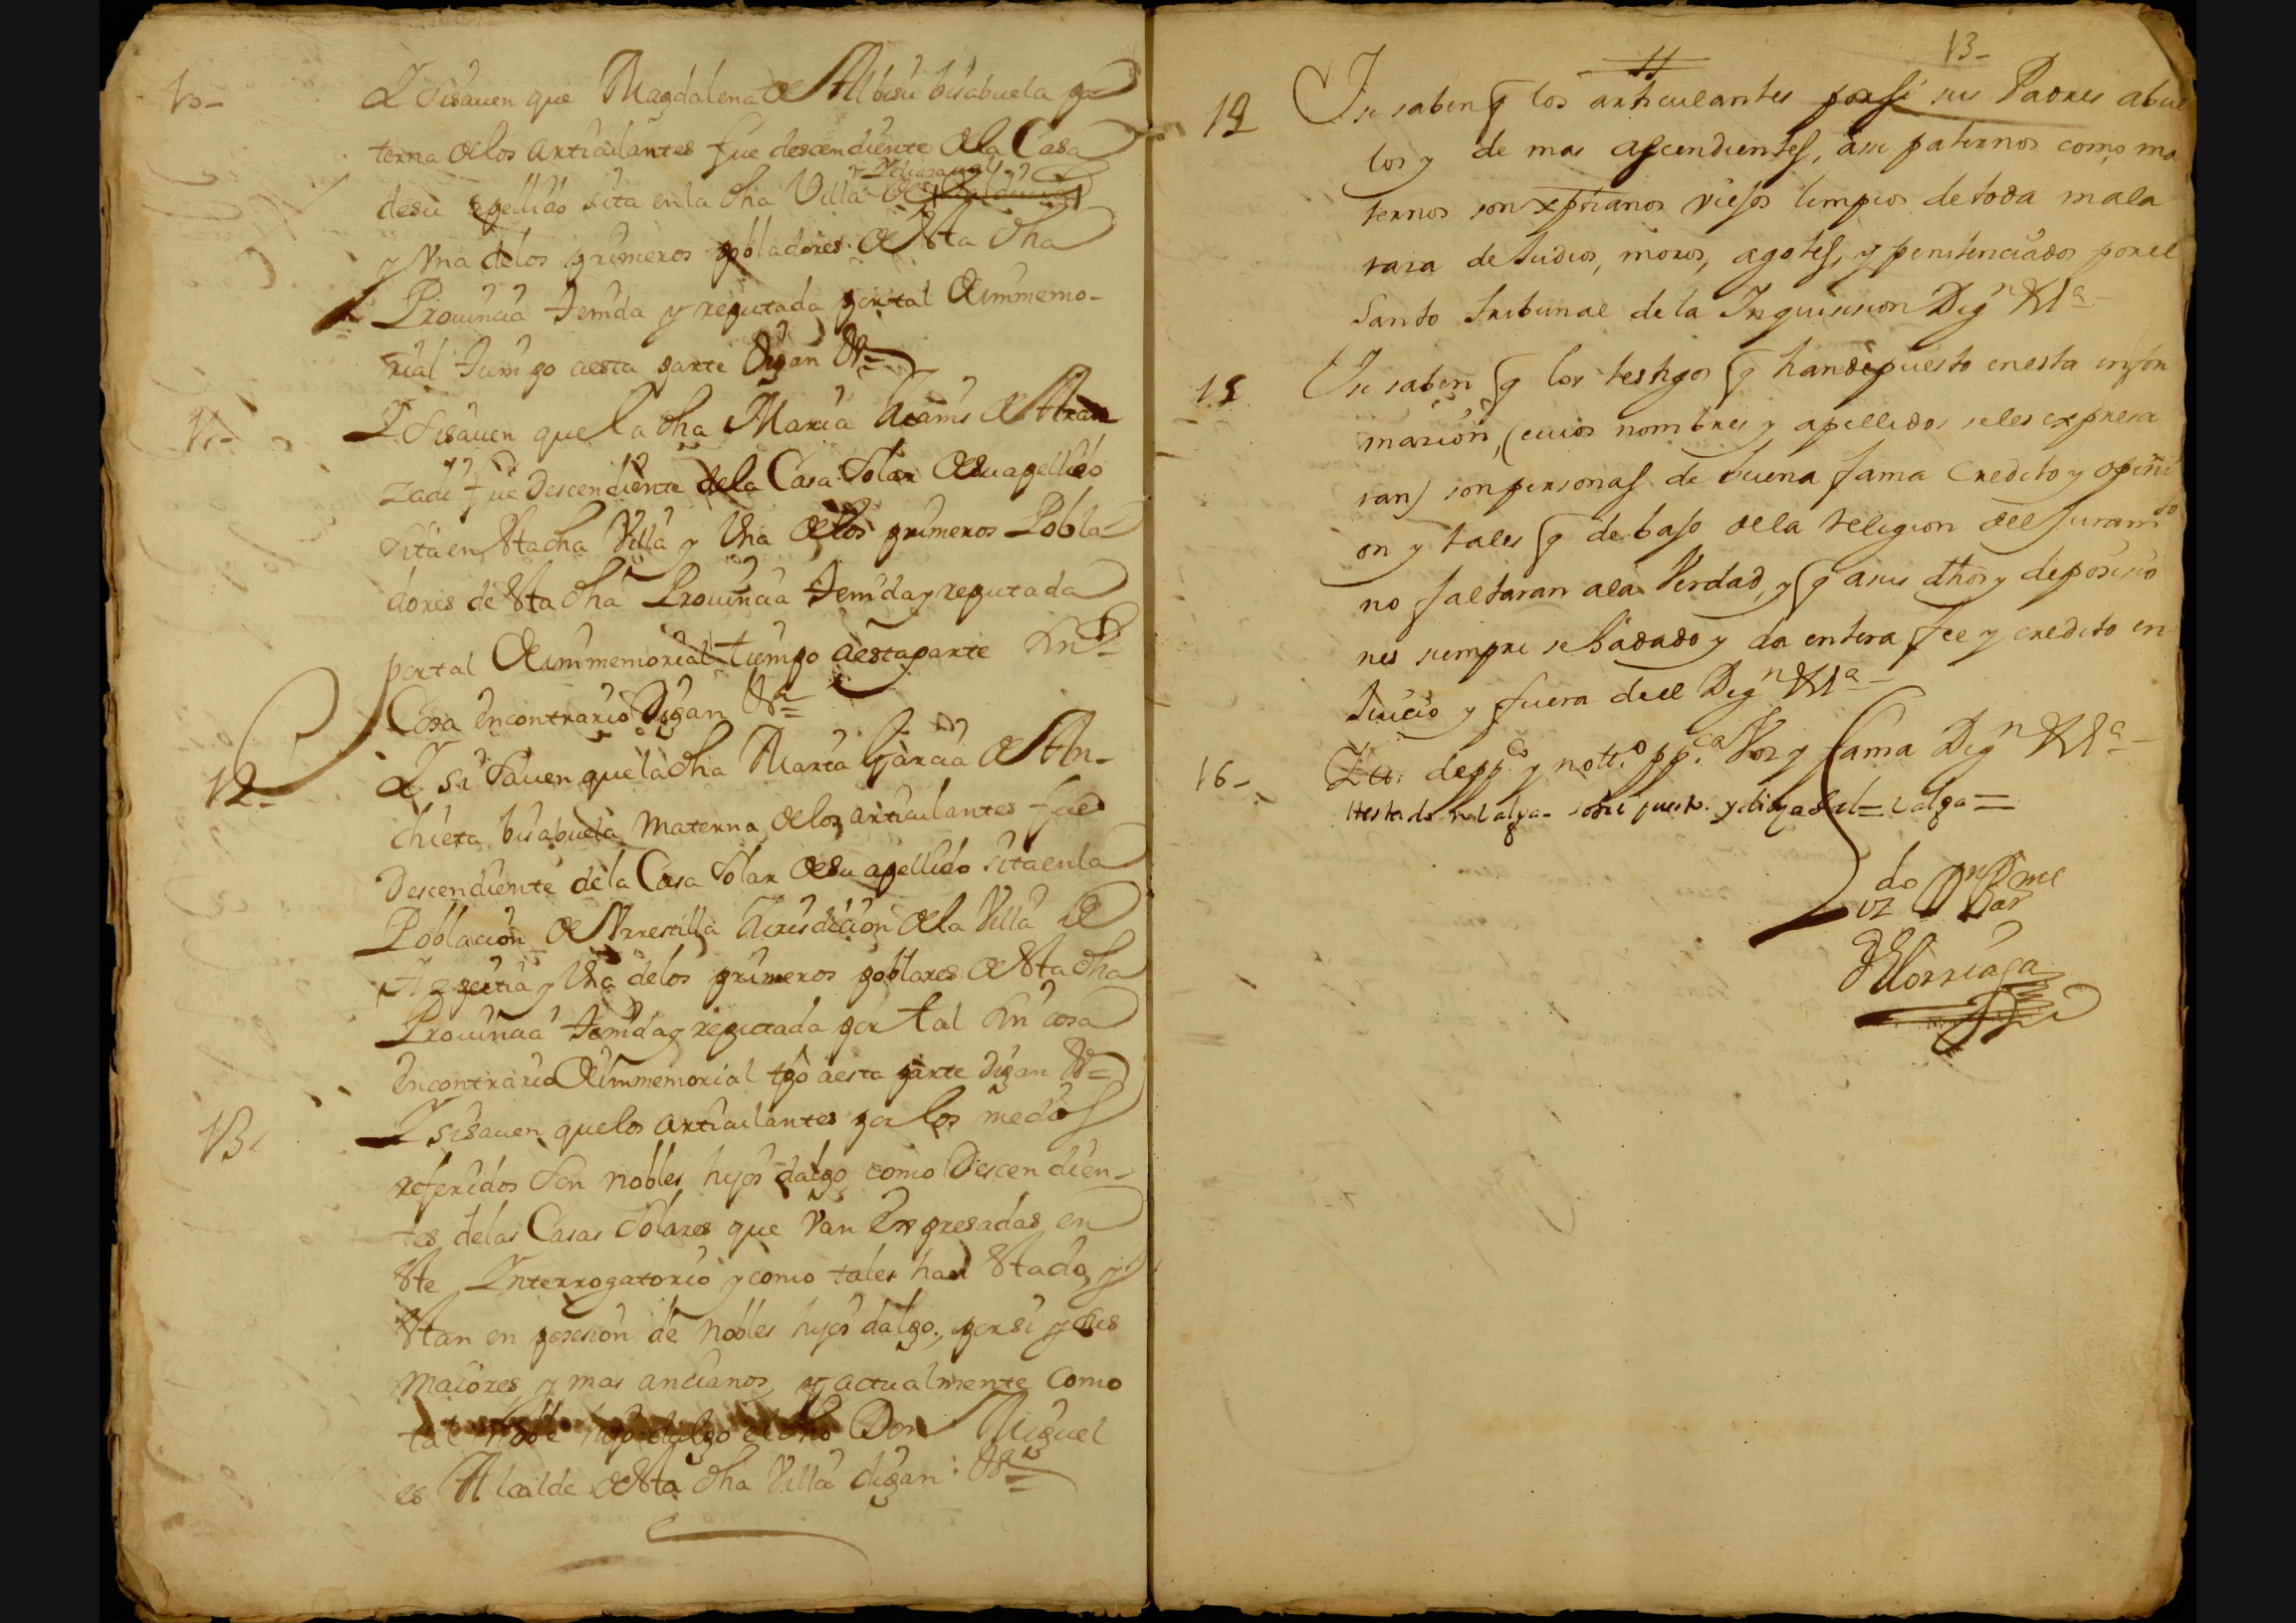 10-
Y Sisauen que Magdalena de Albisu bisabuela pa
terna de los articulantes fue descendiente de la Casa
desu apellido sita en la dha Villa de
y Vna delos primeros pobladores de Sta dha
Prouincia tenida y reputada por tal de immemo-
rial tiempo aesta parte digan &a=
11-
Y Sisauen que la dha Maria Juanis de Aran
zadi fue Descendiente dela Casa Solar desu apellido
Sita en Sta dha Villa y Vna delos primeros Pobla-
dores de Sta dha Prouincia tenida y reputada
por tal de immemorial tiempo aesta parte sin
Cosa encontrario Digan &a=
12-
Y si Sauen que la dha Maria Garcia de An-
chieta bisabuela Materna de los articulantes fue
Descendiente dela Casa Solar desu apellido sita en la
Poblacion de Vrrestilla Jurisdicion de la Villa de
Azpeitia y Vna delos primeros poblares de Sta dha
Prouincia tenida y reputada por tal sin cosa
encontrario de immemorial tpo aesta parte digan &a=
13-
Y sisauen quelos articulantes por los medios
referidos Son nobles hijos dalgo como Descendien-
tes delas Casas Solares que Van Expresadas en
Ste Interrogatorio y como tales han Stado y
Stan en posesion de nobles hijos dalgo, por si y sus
maiores y mas ancianos y actualmente como
tal noble hijo dalgo el dho Don Miguel
es Alcalde de Sta dha Villa digan &a=
13-
14
Y si saben q los articulantes por si sus Padres abue
los y de mas ascendientes, assi paternos como ma
ternos son xptianos viejos limpios de toda mala
raza de Judios, moros, agotes, y penitenciados por el
Santo Tribunal de la Inquisicion Dign &a-
15
Y si saben q los testigos q han depuesto en esta infor
macion, (cuios nombres y apellidos seles expresa
ran) son personas de buena fama credito y opini
on y tales q debajo de la religion del Juramto
no faltaran ala Verdad, y q a sus dhos y deposicio
nes siempre se ha dado y da entera fee y credito en
Juicio y fuera de el Dign &a-
16-
Ytt. de ppco y nottº ppca Voz y fama Dign &a-
testado no valga - sobre puesto. ydiazabal = valga =
do
Elorriaga